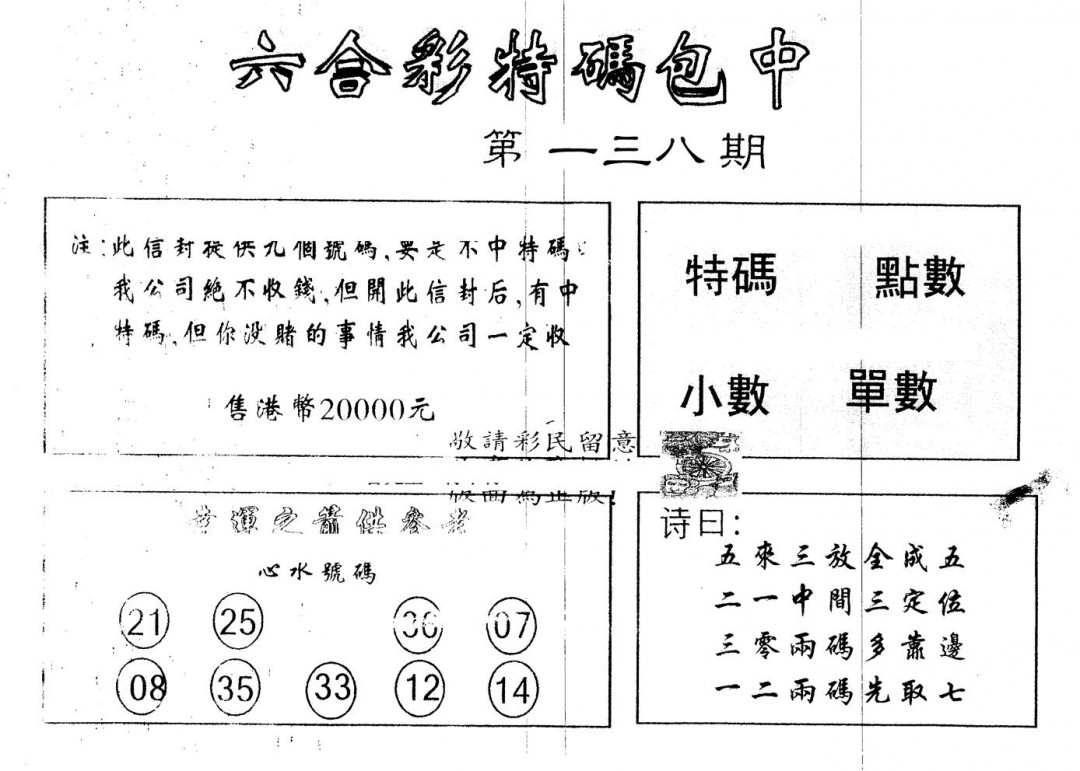 六合彩特碼包中
第一三八期
注:此信封提供九個號碼,要是不中特碼
我公司絕不收錢,但開此信封后,有中
特碼,但你没賭的事情我公司一定收
售港幣20000元
特碼 點數
小數 單數
敬請彩民留意
幸運之箭供參考
心水號碼
21 25 36 07
08 35 33 12 14
诗曰:
五來三放全成五
二一中間三定位
三零兩碼多靠邊
一二兩碼先取七